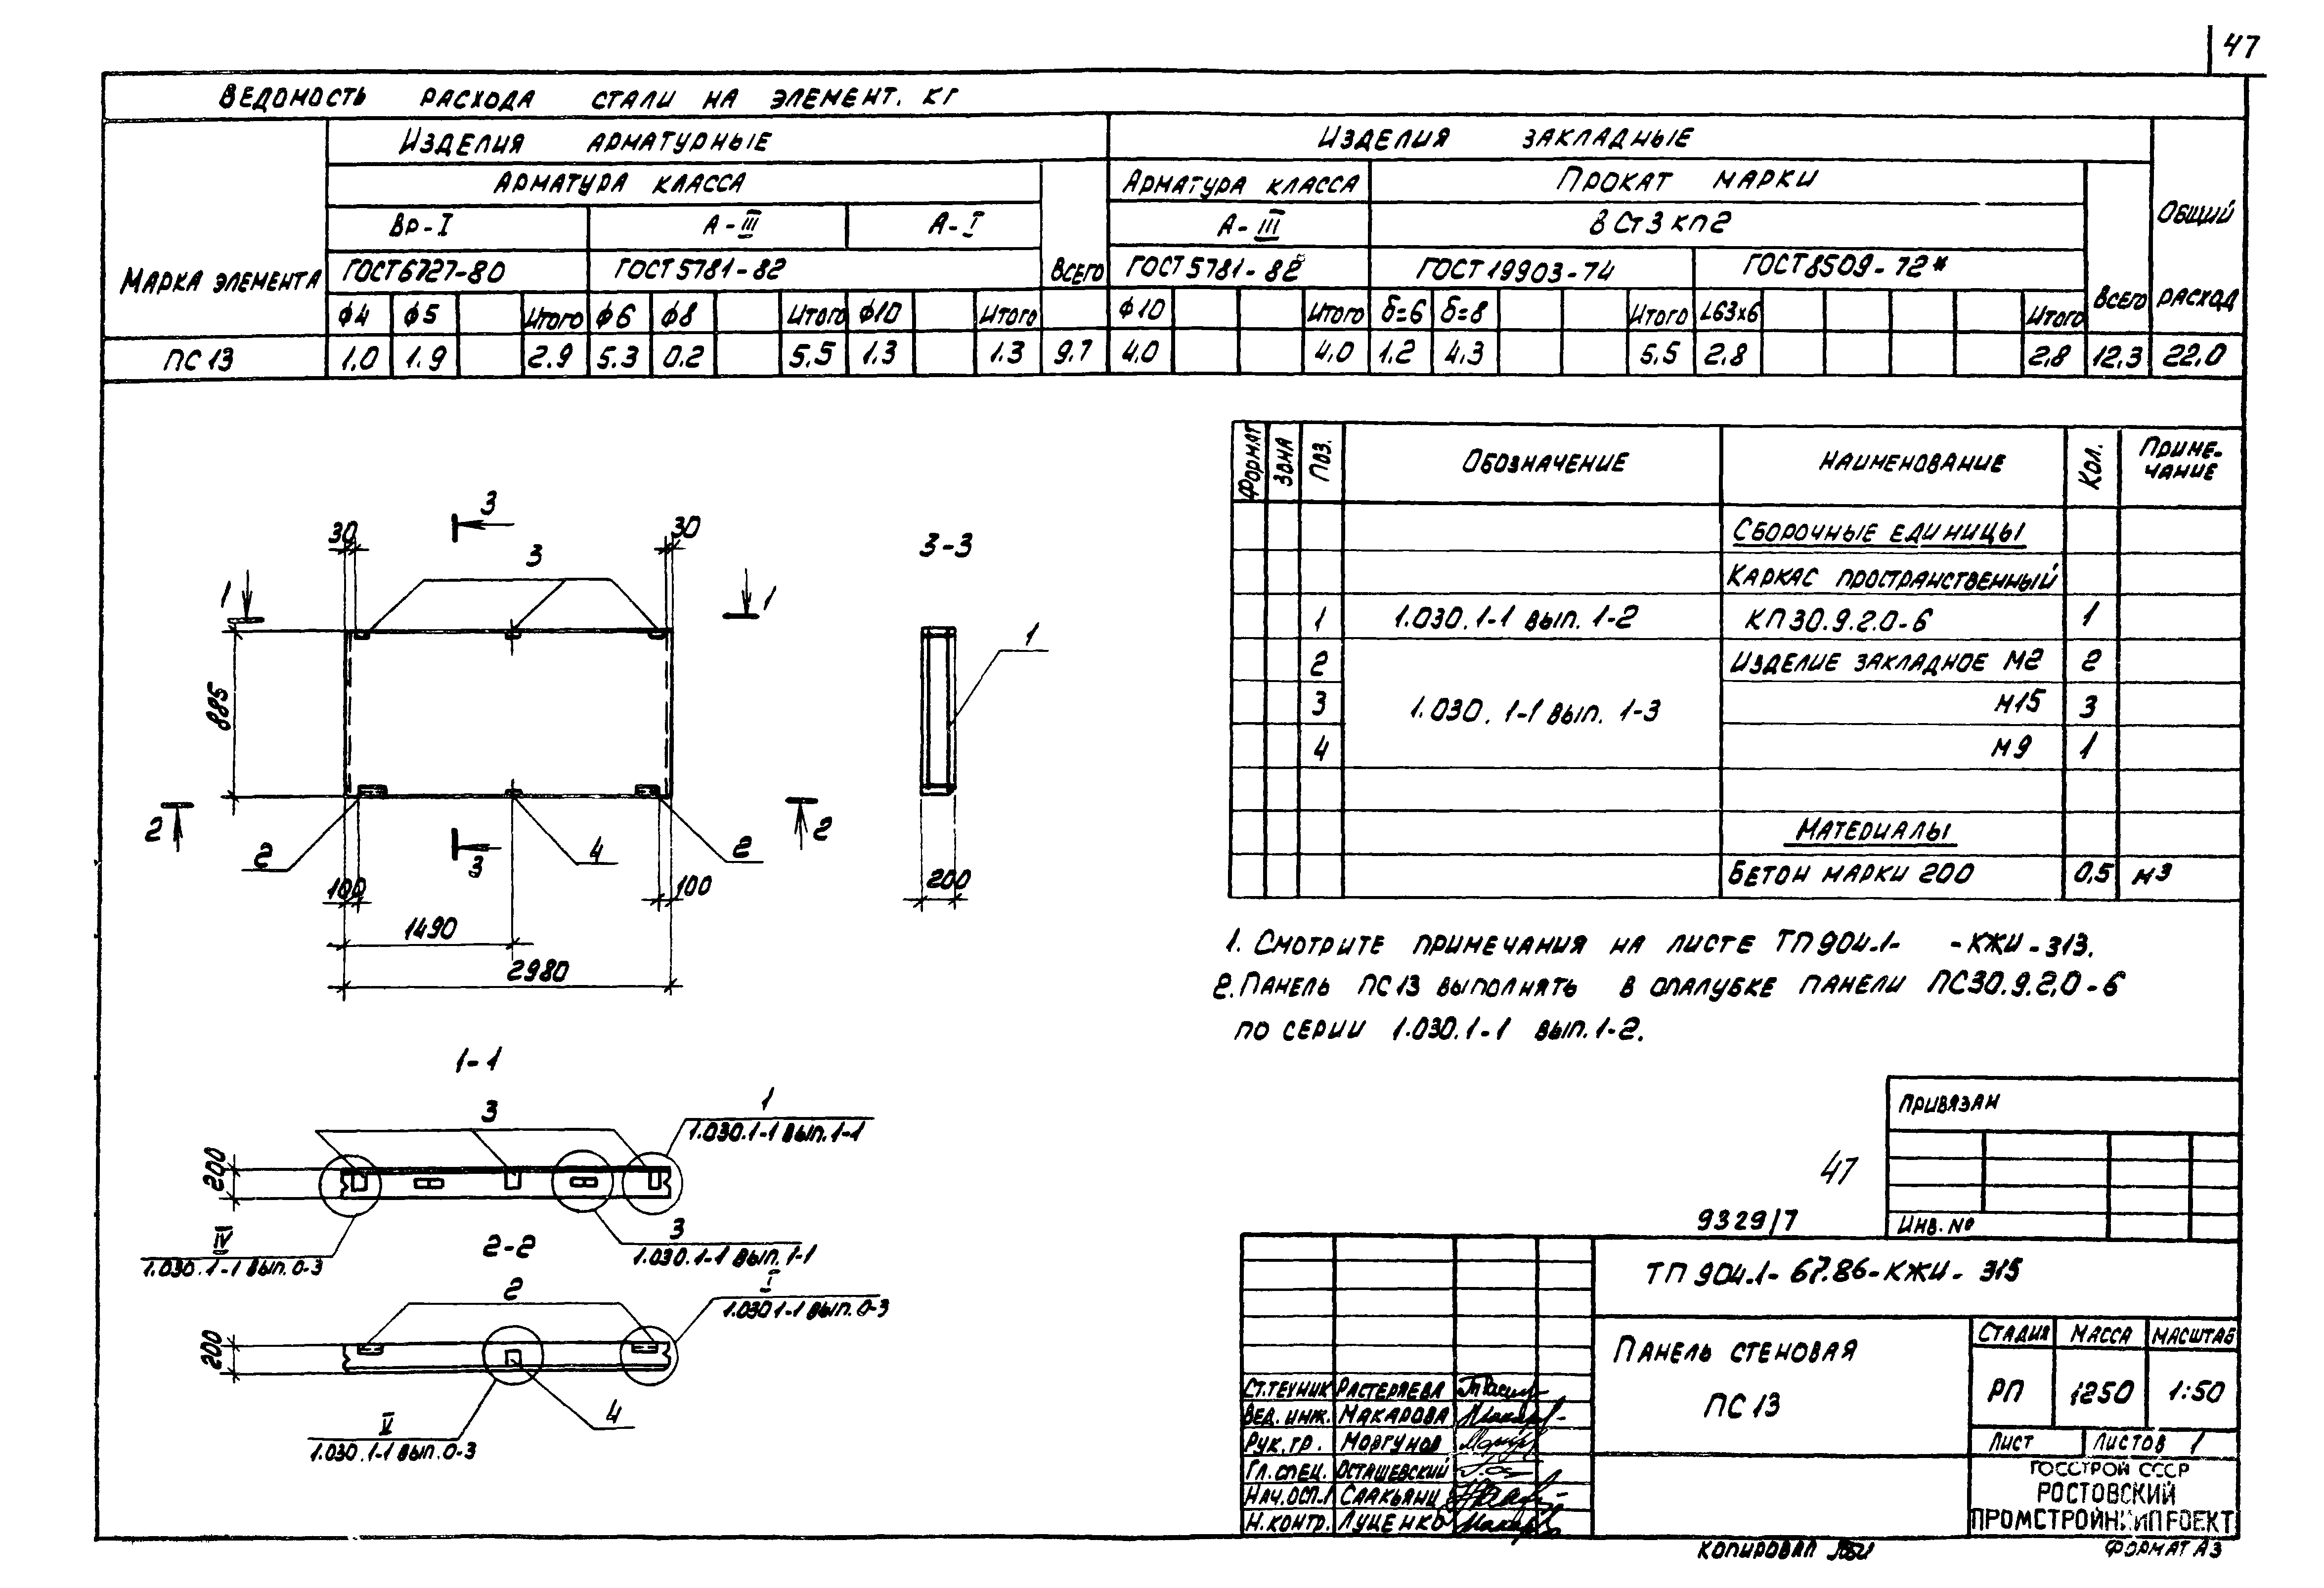 47
Ведомость расхода стали на элемент. кг
Марка элемента
Изделия арматурные
Изделия закладные
Общий расход
Арматура класса
Всего
Арматура класса
Прокат марки
Всего
Вр-I
А-III
А-I
А-III
ВСт3кп2
ГОСТ 6727-80
ГОСТ 5781-82
ГОСТ 5781-82
ГОСТ 19903-74
ГОСТ 8509-72*
ф4 ф5 Итого ф6 ф8 Итого ф10 Итого ф10 Итого δ=6 δ=8 Итого L63х6 Итого
ПС 13 1.0 1.9 2.9 5.3 0.2 5.5 1.3 1.3 9.7 4.0 4.0 1.2 4.3 5.5 2.8 2.8 12.3 22.0
3
30
30
3
3-3
1
1
1
885
2
2
2
3
4
2
100
100
200
1490
2980
1-1
3
1
1.030.1-1 вып. 1-1
200
IV
1.030.1-1 вып. 0-3
3
1.030.1-1 вып. 1-1
2-2
2
I
1.030 1-1 вып. 0-3
200
4
V
1.030.1-1 вып. 0-3
Формат Зона Поз. Обозначение Наименование Кол. Приме-
чание
Сборочные единицы
Каркас пространственный
1 1.030.1-1 вып. 1-2 КП30.9.2.0-6 1
2 Изделие закладное М2 2
3 1.030.1-1 вып. 1-3 М15 3
4 М9 1
Материалы
Бетон марки 200 0,5 м3
1. Смотрите примечания на листе ТП 904.1- -КЖИ-313.
2. Панель ПС13 выполнять в опалубке панели ПС30.9.2,0-6
по серии 1.030.1-1 вып. 1-2.
Привязан
47
9329/7
Инв. №
ТП 904.1-67.86-КЖИ-315
Панель стеновая
ПС 13
Стадия Масса Масштаб
РП 1250 1:50
Лист Листов 1
Ст.техник Растеряева
Вед. инж. Макарова
Рук. гр. Моргунов
Гл. спец. Осташевский
Нач. осп.1 Саакьянц
Н. контр. Луценко
ГОССТРОЙ СССР
РОСТОВСКИЙ
ПРОМСТРОЙНИИПРОЕКТ
Копировал
Формат А3